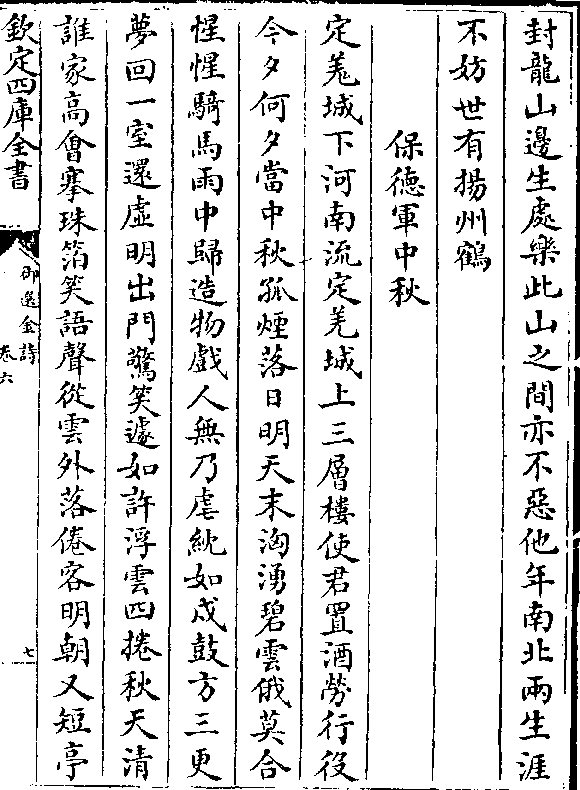 封龍山邊生處樂此山之間亦不惡他年南北兩生涯
不妨世有揚州鶴
保德軍中秋
定羗城下河南流定羗城上三層樓使君置酒勞行役
今夕何夕當中秋孤煙落日明天末洶湧碧雲俄莫合
惺惺騎馬雨中歸造物戲人無乃虐紞如戍鼓方三更
夢回一室還虛明出門驚笑遽如許浮雲四捲秋天清
誰家高會搴珠箔笑語聲從雲外落倦客明朝又短亭
欽定四庫全書
御選金詩
卷六
七